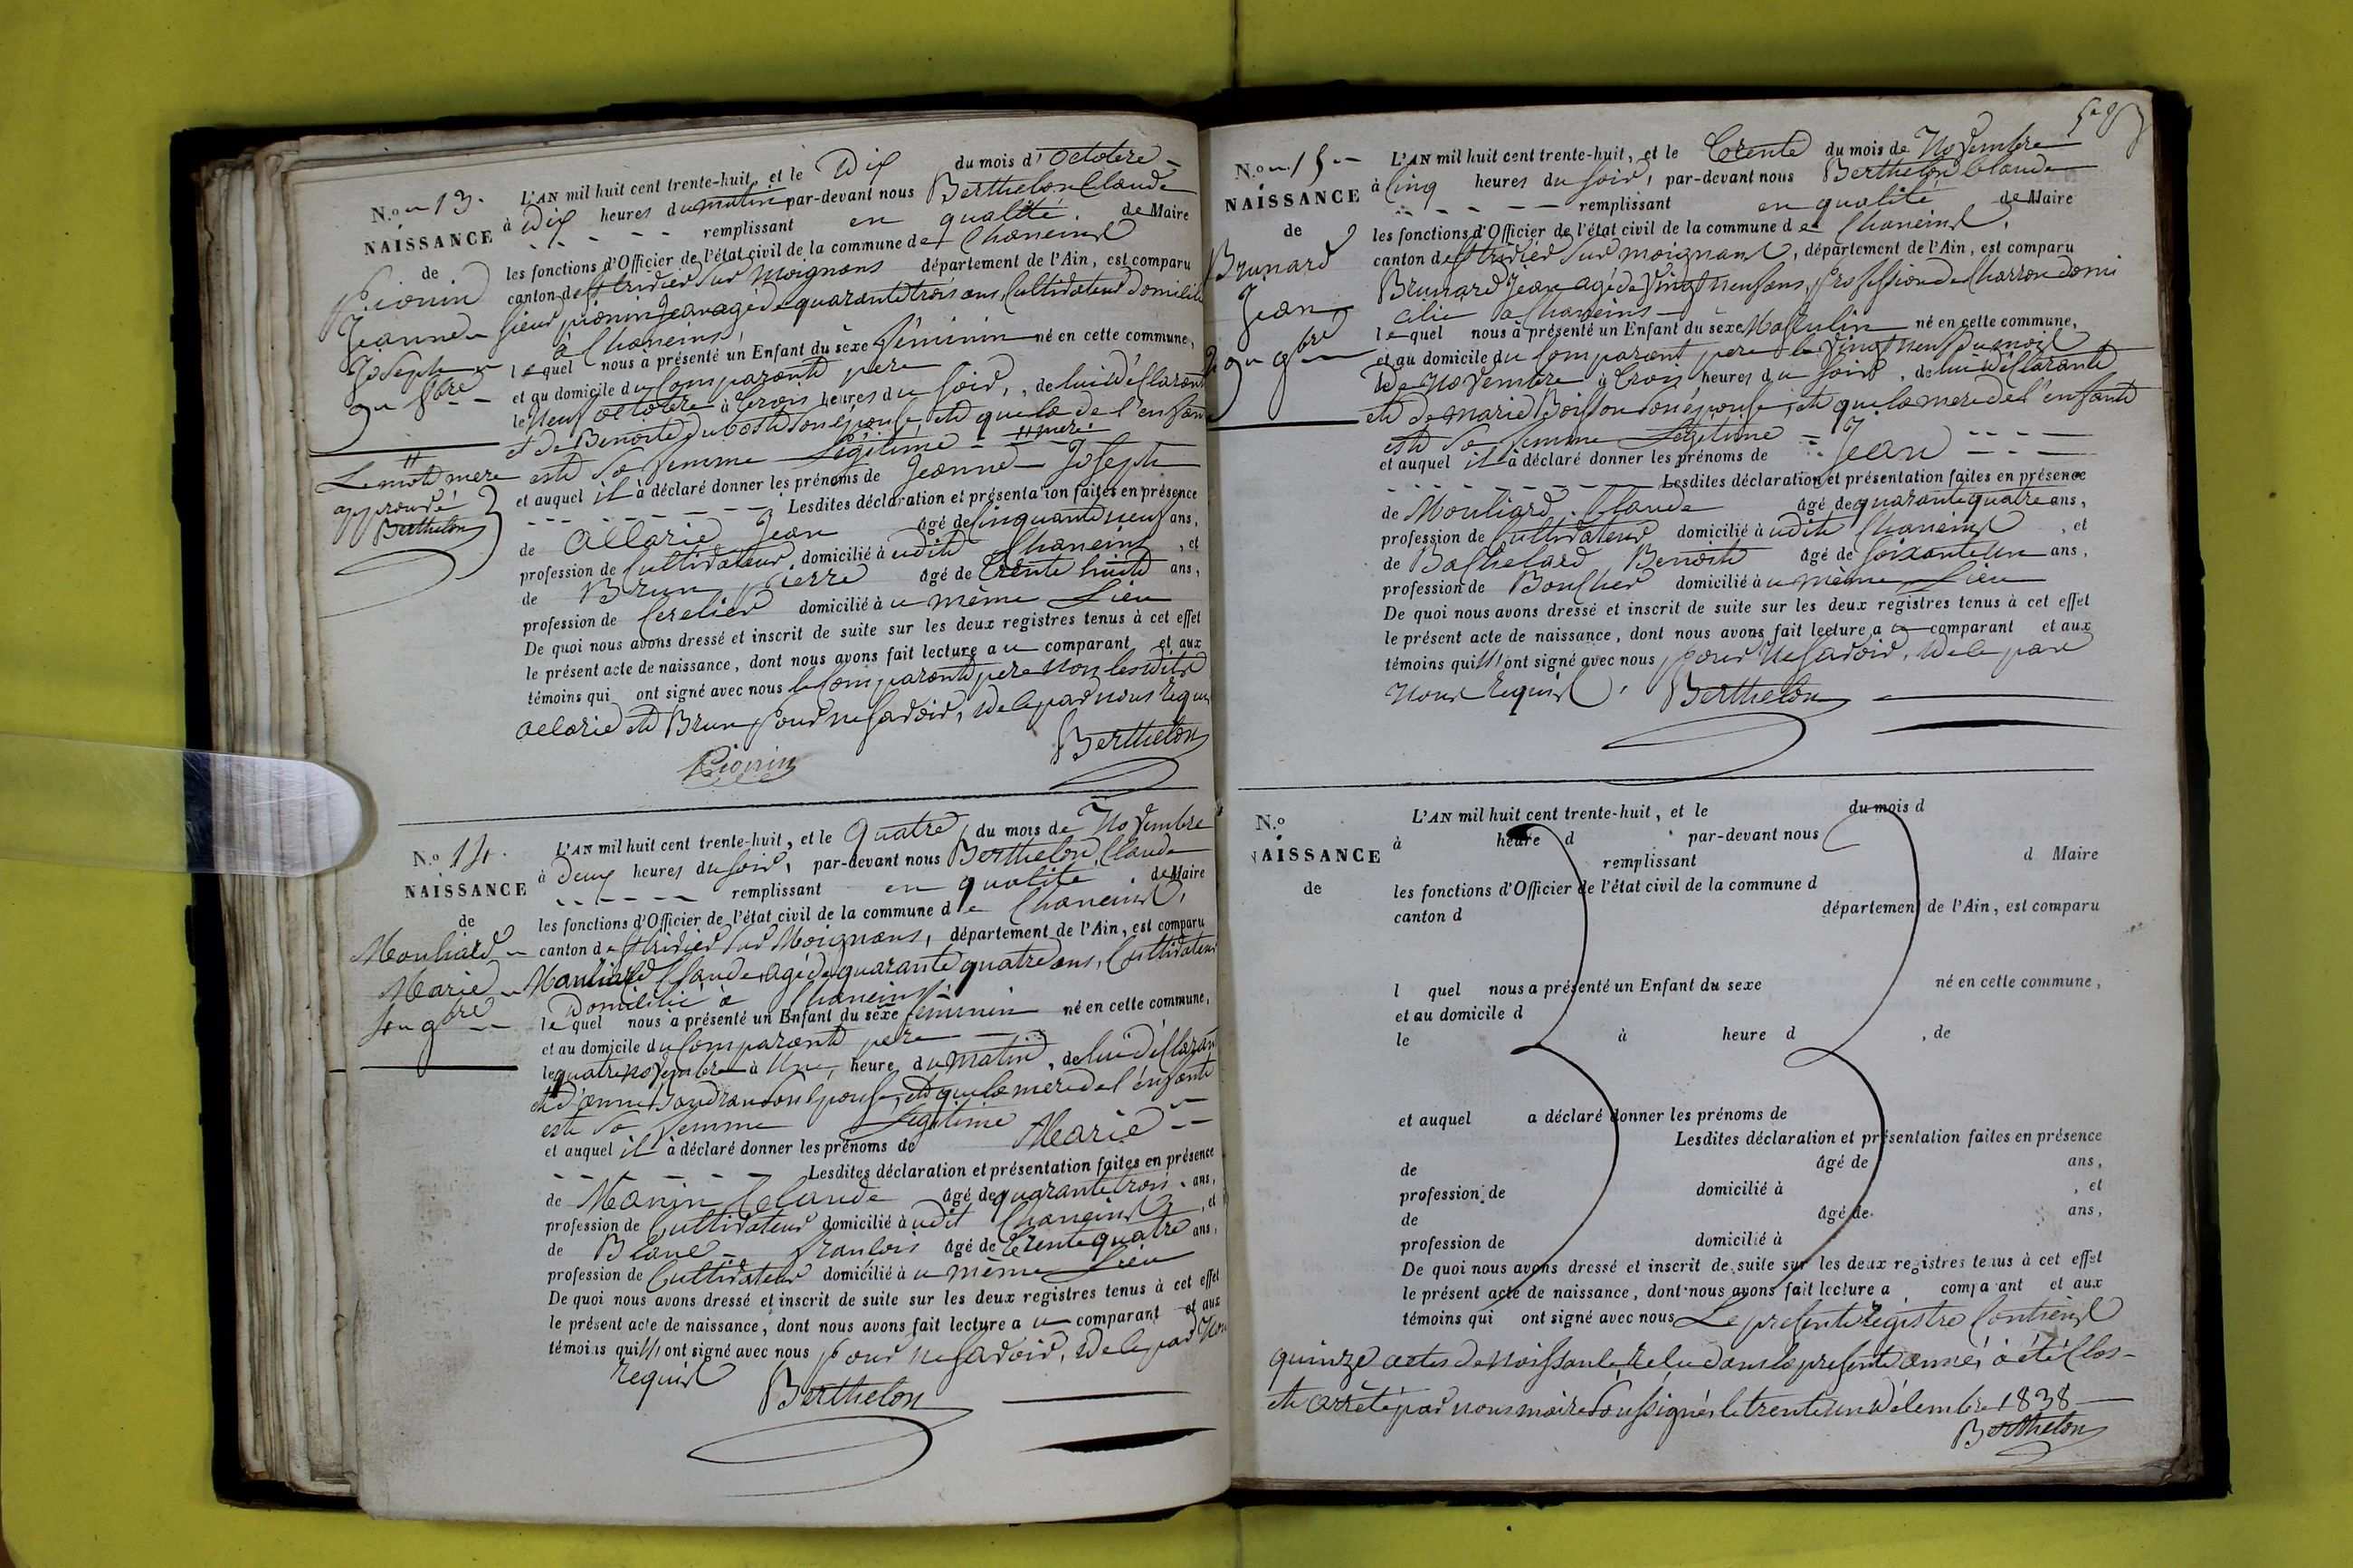 N.º 13.
NAISSANCE
de
Pionin
Jeanne
Joseph
9 8bre
Le mot mere
approuvé
Berthelon
L'AN mil huit cent trente-huit, et le Dix du mois d'Octobre
à Dix heures du matin par-devant nous Berthelon Claude
remplissant en qualité de Maire
les fonctions d'Officier de l'état civil de la commune de Chaneins
canton de St trivier Sur Moignans département de l'Ain, est comparu
Sieur pionin Jean agé de quarante trois ans, Cultivateur domicilié
à Chaneins
lequel nous à présenté un Enfant du sexe féminin né en cette commune,
et au domicile du Comparant pere
le Neuf octobre à trois heures du Soir, de lui déclarant
et de Benoite dubost Son épouse, et que la de l'enfant
est Sa femme Légitime - mere.
et auquel il à déclaré donner les prénoms de Jeanne Joseph
Lesdites déclaration et présentation faites en présence
de Allarie Jean âgé de Cinquante neuf ans,
profession de Cultivateur domicilié à udit Chaneins, et
de Brun Pierre âgé de trente huit ans,
profession de domicilié à u même Lieu
De quoi nous avons dressé et inscrit de suite sur les deux registres tenus à cet effet
le présent acte de naissance, dont nous avons fait lecture a u comparant et aux
témoins qui ont signé avec nous le Comparant pere Non lesdits
allarie et Brun pour ne Savoir, de le par nous requis
Pionin
Berthelon
N.º 14.
NAISSANCE
de
Mouliard
Marie
4 9bre
L'AN mil huit cent trente-huit, et le quatre du mois de Novembre
à Deux heures du Soir, par-devant nous Berthelon Claude
remplissant en qualité de Maire
les fonctions d'Officier de l'état civil de la commune de Chaneins,
canton de St trivier Sur Moignans, département de l'Ain, est comparu
Mouliard Claude, agé de quarante quatre ans, Cultivateur
Domicilié à Chaneins
lequel nous a présenté un Enfant du sexe féminin né en cette commune,
et au domicile du Comparant pere
le quatre novembre à Une heure du matin, de lui déclarant
et d'anne Son épouse, et que la mere de l'enfant
est Sa femme Légitime
et auquel il à déclaré donner les prénoms de Marie
Lesdites déclaration et présentation faites en présence
de Manin Claude âgé de quarante trois ans,
profession de Cultivateur domicilié à udit Chaneins, et
de Blanc François âgé de trente quatre ans,
profession de Cultivateur domicilié à u même Lieu
De quoi nous avons dressé et inscrit de suite sur les deux registres tenus à cet effet
le présent acte de naissance, dont nous avons fait lecture a u comparant et aux
témoins qui ont signé avec nous pour ne Savoir, de le par Nous
requis
Berthelon
N.º 15
NAISSANCE
de
Brunard
Jean
29 9bre
L'AN mil huit cent trente-huit, et le trente du mois de Novembre
à Cinq heures du Soir, par-devant nous Berthelon Claude
remplissant en qualité de Maire
les fonctions d'Officier de l'état civil de la commune de Chaneins,
canton de St trivier Sur moignans, département de l'Ain, est comparu
Brunard Jean agé de Vingt neuf ans, profession de Charron domi
cilié à Chaneins
lequel nous à présenté un Enfant du sexe Masculin né en cette commune,
et au domicile du Comparant pere le Vingt neuf du mois
de Novembre à trois heures du Soir, de lui déclarant
et de marie Boisson Son épouse, et que la mere de l'enfant
est Sa femme Légitime
et auquel il à déclaré donner les prénoms de Jean
Lesdites déclaration et présentation faites en présence
de Mouliard Claude âgé de quarante quatre ans,
profession de Cultivateur domicilié à udit Chaneins, et
de Bachelard Benoit âgé de Soixante un ans,
profession de Boucher domicilié à u même Lieu
De quoi nous avons dressé et inscrit de suite sur les deux registres tenus à cet effet
le présent acte de naissance, dont nous avons fait lecture a u comparant et aux
témoins qui ont signé avec nous pour Ne Savoir, de le par
Nous requis, Berthelon
N.º
NAISSANCE
de
L'AN mil huit cent trente-huit, et le du mois d
à heure d par-devant nous
remplissant d Maire
les fonctions d'Officier de l'état civil de la commune d
canton d département de l'Ain, est comparu
l quel nous a présenté un Enfant du sexe né en cette commune,
et au domicile d
le à heure d , de
et auquel a déclaré donner les prénoms de
Lesdites déclaration et présentation faites en présence
de âgé de ans,
profession de domicilié à , et
de âgé de ans,
profession de domicilié à
De quoi nous avons dressé et inscrit de suite sur les deux registres tenus à cet effet
le présent acte de naissance, dont nous avons fait lecture a comparant et aux
témoins qui ont signé avec nous Le présent registre Contient
quinze actes de naissance, dans la présente année, à été Clos
et arrêté par nous maire Soussigné, le trente un décembre 1838
Berthelon